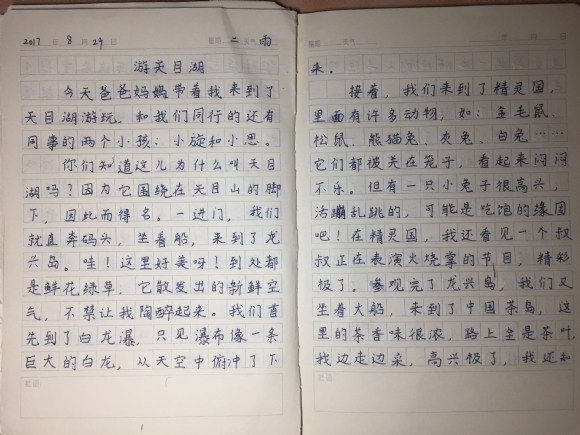 2017年8月29日 星期二 天气雨
游天目湖
今天爸爸妈妈带着我来到了
天目湖游玩,和我们同行的还有
同事的两个小孩:小旋和小思。
你们知道这儿为什么叫天目
湖吗?因为它围绕在天目山的脚
下,因此而得名。一进门,我们
就直奔码头,坐着船,来到了龙
兴岛。哇!这里好美呀?到处都
是鲜花绿草,它散发出的新鲜空
气,不禁让我陶醉起来。我们首
先到了白龙瀑,只见瀑布像一条
巨大的白龙,从天空中俯冲了下
1
星期 天气
来。
接着,我们来到了精灵国,
里面有许多动物,如:金毛鼠、
松鼠、熊猫兔、夹兔、白兔……
它们都被关在笼子,看起来闷闷
不乐。但有一只小兔子很高兴,
活蹦乱跳的,可能是吃饱的缘固
吧!在精灵国,我还看见一个叔
叔正在表演火烧掌的节目,精彩
极了。参观完了龙兴岛,我们又
坐着大船,来到了中国茶岛,这
里的茶香味很浓,路上全是茶叶,
我边走边采,高兴极了,我还知